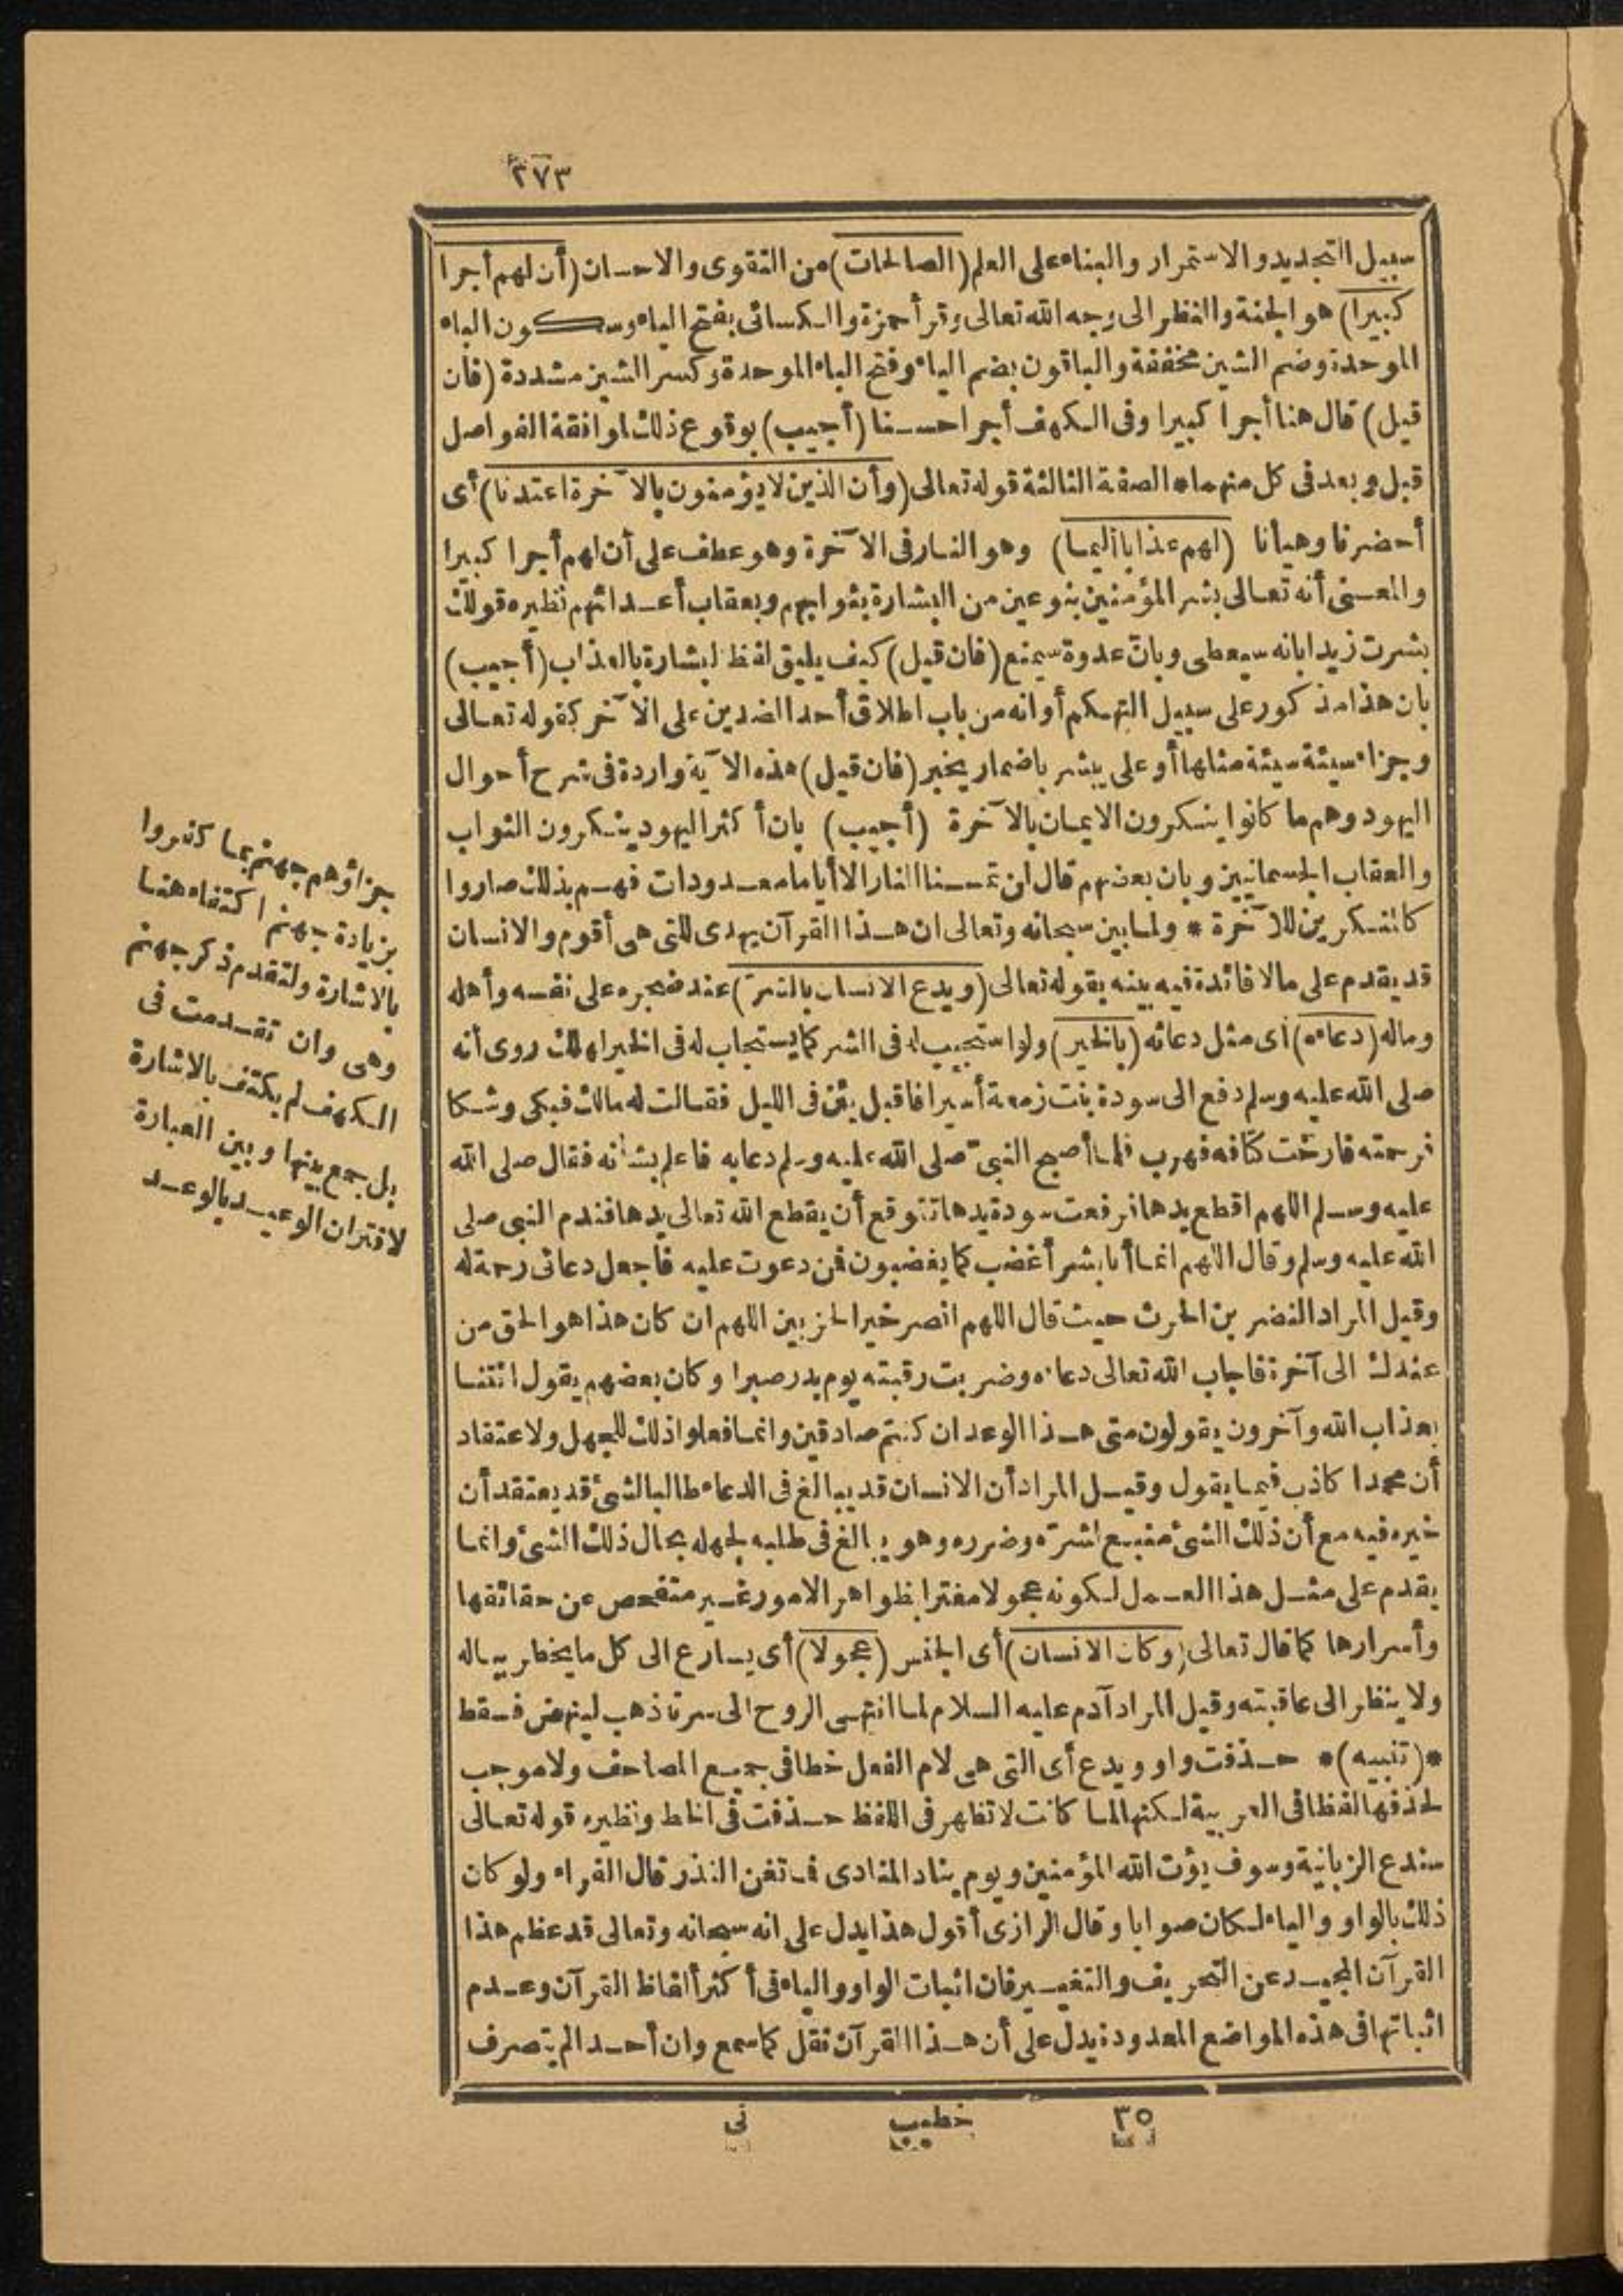 ٢٧٣
سبيل التجديد والاستمرار والبناء على العلم (الصالحات) من التقوى والاحسان (أن لهم أجرا
كبيرا) هو الجنة والنظر الى وجه الله تعالى وقرأ حمزة والكسائى بفتح الياء وسكون الباء
الموحدة وضم الشين مخففة والباقون بضم الياء وفتح الباء الموحدة وكسر الشين مشددة (فان
قيل) قال هنا أجرا كبيرا وفى الكهف أجرا حسنا (أجيب) بوقوع ذلك لموافقة الفواصل
قبل وبعد فى كل منهما * الصفة الثالثة قوله تعالى (وأن الذين لا يؤمنون بالآخرة اعتدنا) أى
أحضرنا وهيأنا (لهم عذابا أليما) وهو النار فى الآخرة وهو عطف على أن لهم أجرا كبيرا
والمعنى أنه تعالى بشر المؤمنين بنوعين من البشارة بثوابهم وبعقاب أعدائهم نظيره قولك
بشرت زيدا بانه سيعطى وبان عدوه سيمنع (فان قيل) كيف يليق لفظ البشارة بالعذاب (أجيب)
بان هذا مذكور على سبيل التهكم أو انه من باب اطلاق أحد الضدين على الآخر كقوله تعالى
وجزاء سيئة سيئة مثلها أو على يبشر باضمار يخبر (فان قيل) هذه الآية واردة فى شرح أحوال
اليهود وهم ما كانوا ينكرون الايمان بالآخرة (أجيب) بان أكثر اليهود ينكرون الثواب
والعقاب الجسمانيين وبان بعضهم قال لن تمسنا النار الا أياما معدودات فهم بذلك صاروا
كالمنكرين للآخرة * ولما بين سبحانه وتعالى ان هذا القرآن يهدى للتى هى أقوم والانسان
قد يقدم على مالا فائدة فيه بينه بقوله تعالى (ويدع الانسان بالشر) عند ضجره على نفسه وأهله
وماله (دعاءه) أى مثل دعائه (بالخير) ولو استجيب له فى الشر كما يستجاب له فى الخير لهلك روى أنه
صلى الله عليه وسلم دفع الى سودة بنت زمعة أسيرا فاقبل يئن فى الليل فقالت له مالك فبكى وشكا
فرحمته فارخت كتافه فهرب فلما أصبح النبى صلى الله عليه وسلم دعا به فاعلم بشأنه فقال صلى الله
عليه وسلم اللهم اقطع يدها فرفعت سودة يدها تتوقع أن يقطع الله تعالى يدها فندم النبى صلى
الله عليه وسلم وقال اللهم انما أنا بشر أغضب كما يغضبون فمن دعوت عليه فاجعل دعائى رحمة له
وقيل المراد النضر بن الحرث حيث قال اللهم انصر خير الحزبين اللهم ان كان هذا هو الحق من
عندك الى آخرة فاجاب الله تعالى دعاءه وضربت رقبته يوم بدر صبرا وكان بعضهم يقول ائتنا
بعذاب الله وآخرون يقولون متى هذا الوعد ان كنتم صادقين وانما فعلوا ذلك للجهل ولاعتقاد
أن محمدا كاذب فيما يقول وقيل المراد أن الانسان قد يبالغ فى الدعاء طالبا لشئ قد يعتقد أن
خيره فيه مع أن ذلك الشئ منبع لشره وضرره وهو يبالغ فى طلبه لجهله بحال ذلك الشئ وانما
يقدم على مثل هذا العمل لكونه عجولا مغترا بظواهر الامور غير متفحص عن حقائقها
وأسرارها كما قال تعالى (وكان الانسان) أى الجنس (عجولا) أى يسارع الى كل ما يخطر بباله
ولا ينظر الى عاقبته وقيل المراد آدم عليه السلام لما انتهى الروح الى سرته ذهب لينهض فسقط
*(تنبيه)* حذفت واو ويدع أى التى هى لام الفعل خطا فى جميع المصاحف ولا موجب
لحذفها لفظا فى العربية لكنها لما كانت لا تظهر فى اللفظ حذفت فى الخط ونظيره قوله تعالى
سندع الزبانية وسوف يؤت الله المؤمنين ويوم يناد المنادى فما تغن النذر قال الفراء ولو كان
ذلك بالواو والياء لكان صوابا وقال الرازى أقول هذا يدل على انه سبحانه وتعالى قد عظم هذا
القرآن المجيد عن التحريف والتغيير فان اثبات الواو والياء فى أكثر ألفاظ القرآن وعدم
اثباتها فى هذه المواضع المعدودة يدل على أن هذا القرآن نقل كما سمع وان أحدا لم يتصرف
جزاؤهم جهنم بما كفروا
بزيادة جهنم اكتفاء هنا
بالاشارة ولتقدم ذكر جهنم
وهى وان تقدمت فى
الكهف لم يكتف بالاشارة
بل جمع بينها وبين العبارة
لاقتران الوعيد بالوعد
٣٥ خطيب نى